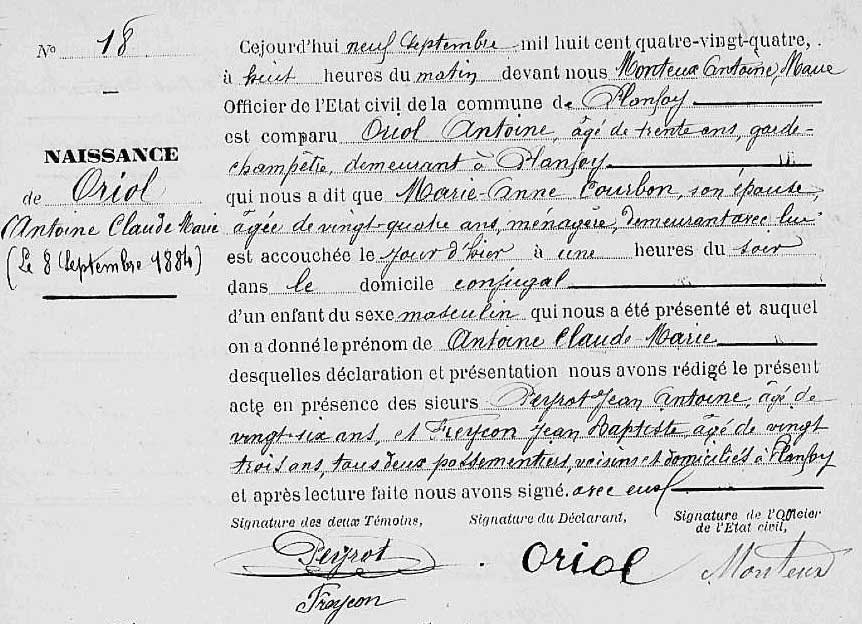 N° 18
NAISSANCE
de Oriol
Antoine Claude Marie
(Le 8 Septembre 1884)
Cejourd'hui neuf Septembre mil huit cent quatre-vingt-quatre,
à huit heures du matin devant nous Monteux Antoine, Marie
Officier de l'Etat civil de la commune de Planfoy
est comparu Oriol Antoine, âgé de trente ans, garde-
champêtre, demeurant à Planfoy
qui nous a dit que Marie-Anne Courbon, son épouse,
âgée de vingt-quatre ans, ménagère, demeurant avec lui
est accouchée le jour d'hier à une heures du soir
dans le domicile conjugal
d'un enfant du sexe masculin qui nous a été présenté et auquel
on a donné le prénom de Antoine Claude-Marie
desquelles déclaration et présentation nous avons rédigé le présent
acte en présence des sieurs Peyrot Jean Antoine, âgé de
vingt-six ans, et Freycon Jean Baptiste, âgé de vingt
trois ans, tous deux passementiers, voisins et domiciliés à Planfoy
et après lecture faite nous avons signé. avec eux
Signature des deux Témoins, Signature du Déclarant, Signature de l'Officier
de l'Etat civil,
Peyrot Oriol Monteux
Freycon